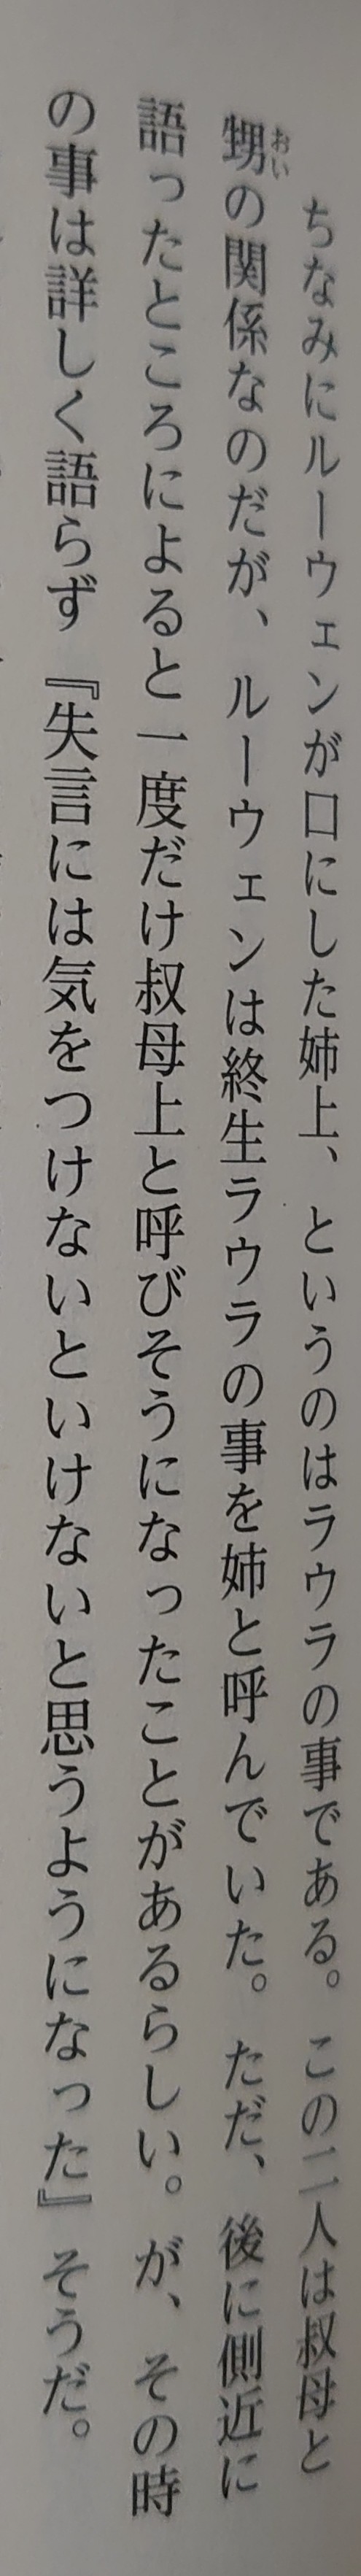 ちなみにルーウェンが口にした姉上、というのはラウラの事である。この二人は叔母と
甥の関係なのだが、ルーウェンは終生ラウラの事を姉と呼んでいた。ただ、後に側近に
語ったところによると一度だけ叔母上と呼びそうになったことがあるらしい。が、その時
の事は詳しく語らず『失言には気をつけないといけないと思うようになった』そうだ。